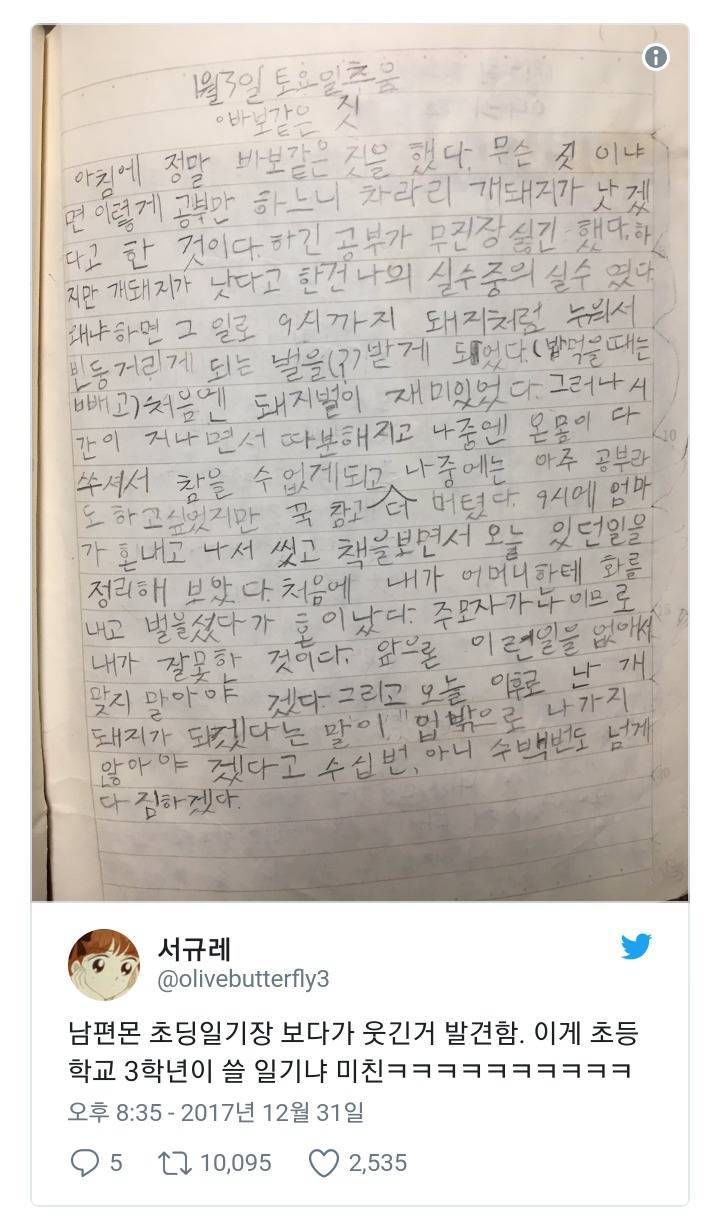 1월3일 토요일 추움
바보같은 짓
아침에 정말 바보같은 짓을 했다. 무슨 짓 이냐
면 이렇게 공부만 하느니 차라리 개돼지가 낫겠
다고 한 것이다. 하긴 공부가 무진장 싫긴 했다. 하
지만 개돼지가 낫다고 한건 나의 실수중의 실수 였다
왜냐하면 그 일로 9시까지 돼지처럼 누워서
빈둥거리게 되는 벌을(??)받게 되었다.(밥먹을때는
빼고)처음엔 돼지벌이 재미있었다. 그러나 시
간이 지나면서 따분해지고 나중엔 온몸이 다
쑤셔서 참을 수 없게되고 나중에는 아주 공부라
도 하고싶었지만 꾹 참고 더 버텼다. 9시에 엄마
가 혼내고 나서 씻고 책을보면서 오늘 있던일을
정리해 보았다. 처음에 내가 어머니한테 화를
내고 벌을섰다가 혼이났다. 주모자가 나이므로
내가 잘못한 것이다. 앞으론 이런일을 없애서
맞지 말아야 겠다. 그리고 오늘 이후로 난 개
돼지가 돼겠다는 말이 입밖으로 나가지
않아야 겠다고 수십번, 아니 수백번도 넘게
다짐하겠다.
서규레
@olivebutterfly3
남편몬 초딩일기장 보다가 웃긴거 발견함. 이게 초등
학교 3학년이 쓸 일기냐 미친ㅋㅋㅋㅋㅋㅋㅋㅋㅋㅋ
오후 8:35 - 2017년 12월 31일
5 10,095 2,535